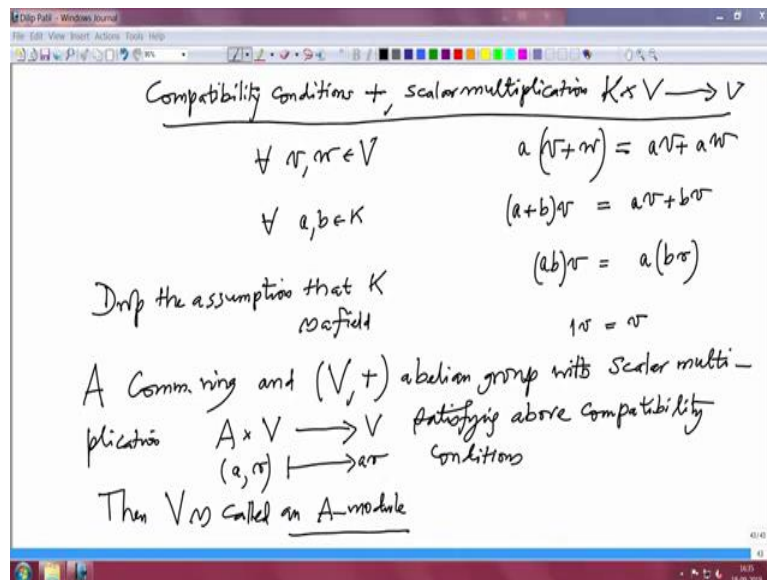 Dilip Patil - Windows Journal
File Edit View Insert Actions Tools Help
Compatibility Conditions +, scalar multiplication K × V ⟶ V
∀ v, w ∈ V a(v+w) = av + aw
∀ a, b ∈ K (a+b)v = av + bv
(ab)v = a(bv)
Drop the assumption that K
is a field 1v = v
A Comm. ring and (V, +) abelian group with Scalar multi-
plication A × V ⟶ V satisfying above compatibility
(a, v) ⟼ av Conditions
Then V is called an A-module
43/43
43
16:35